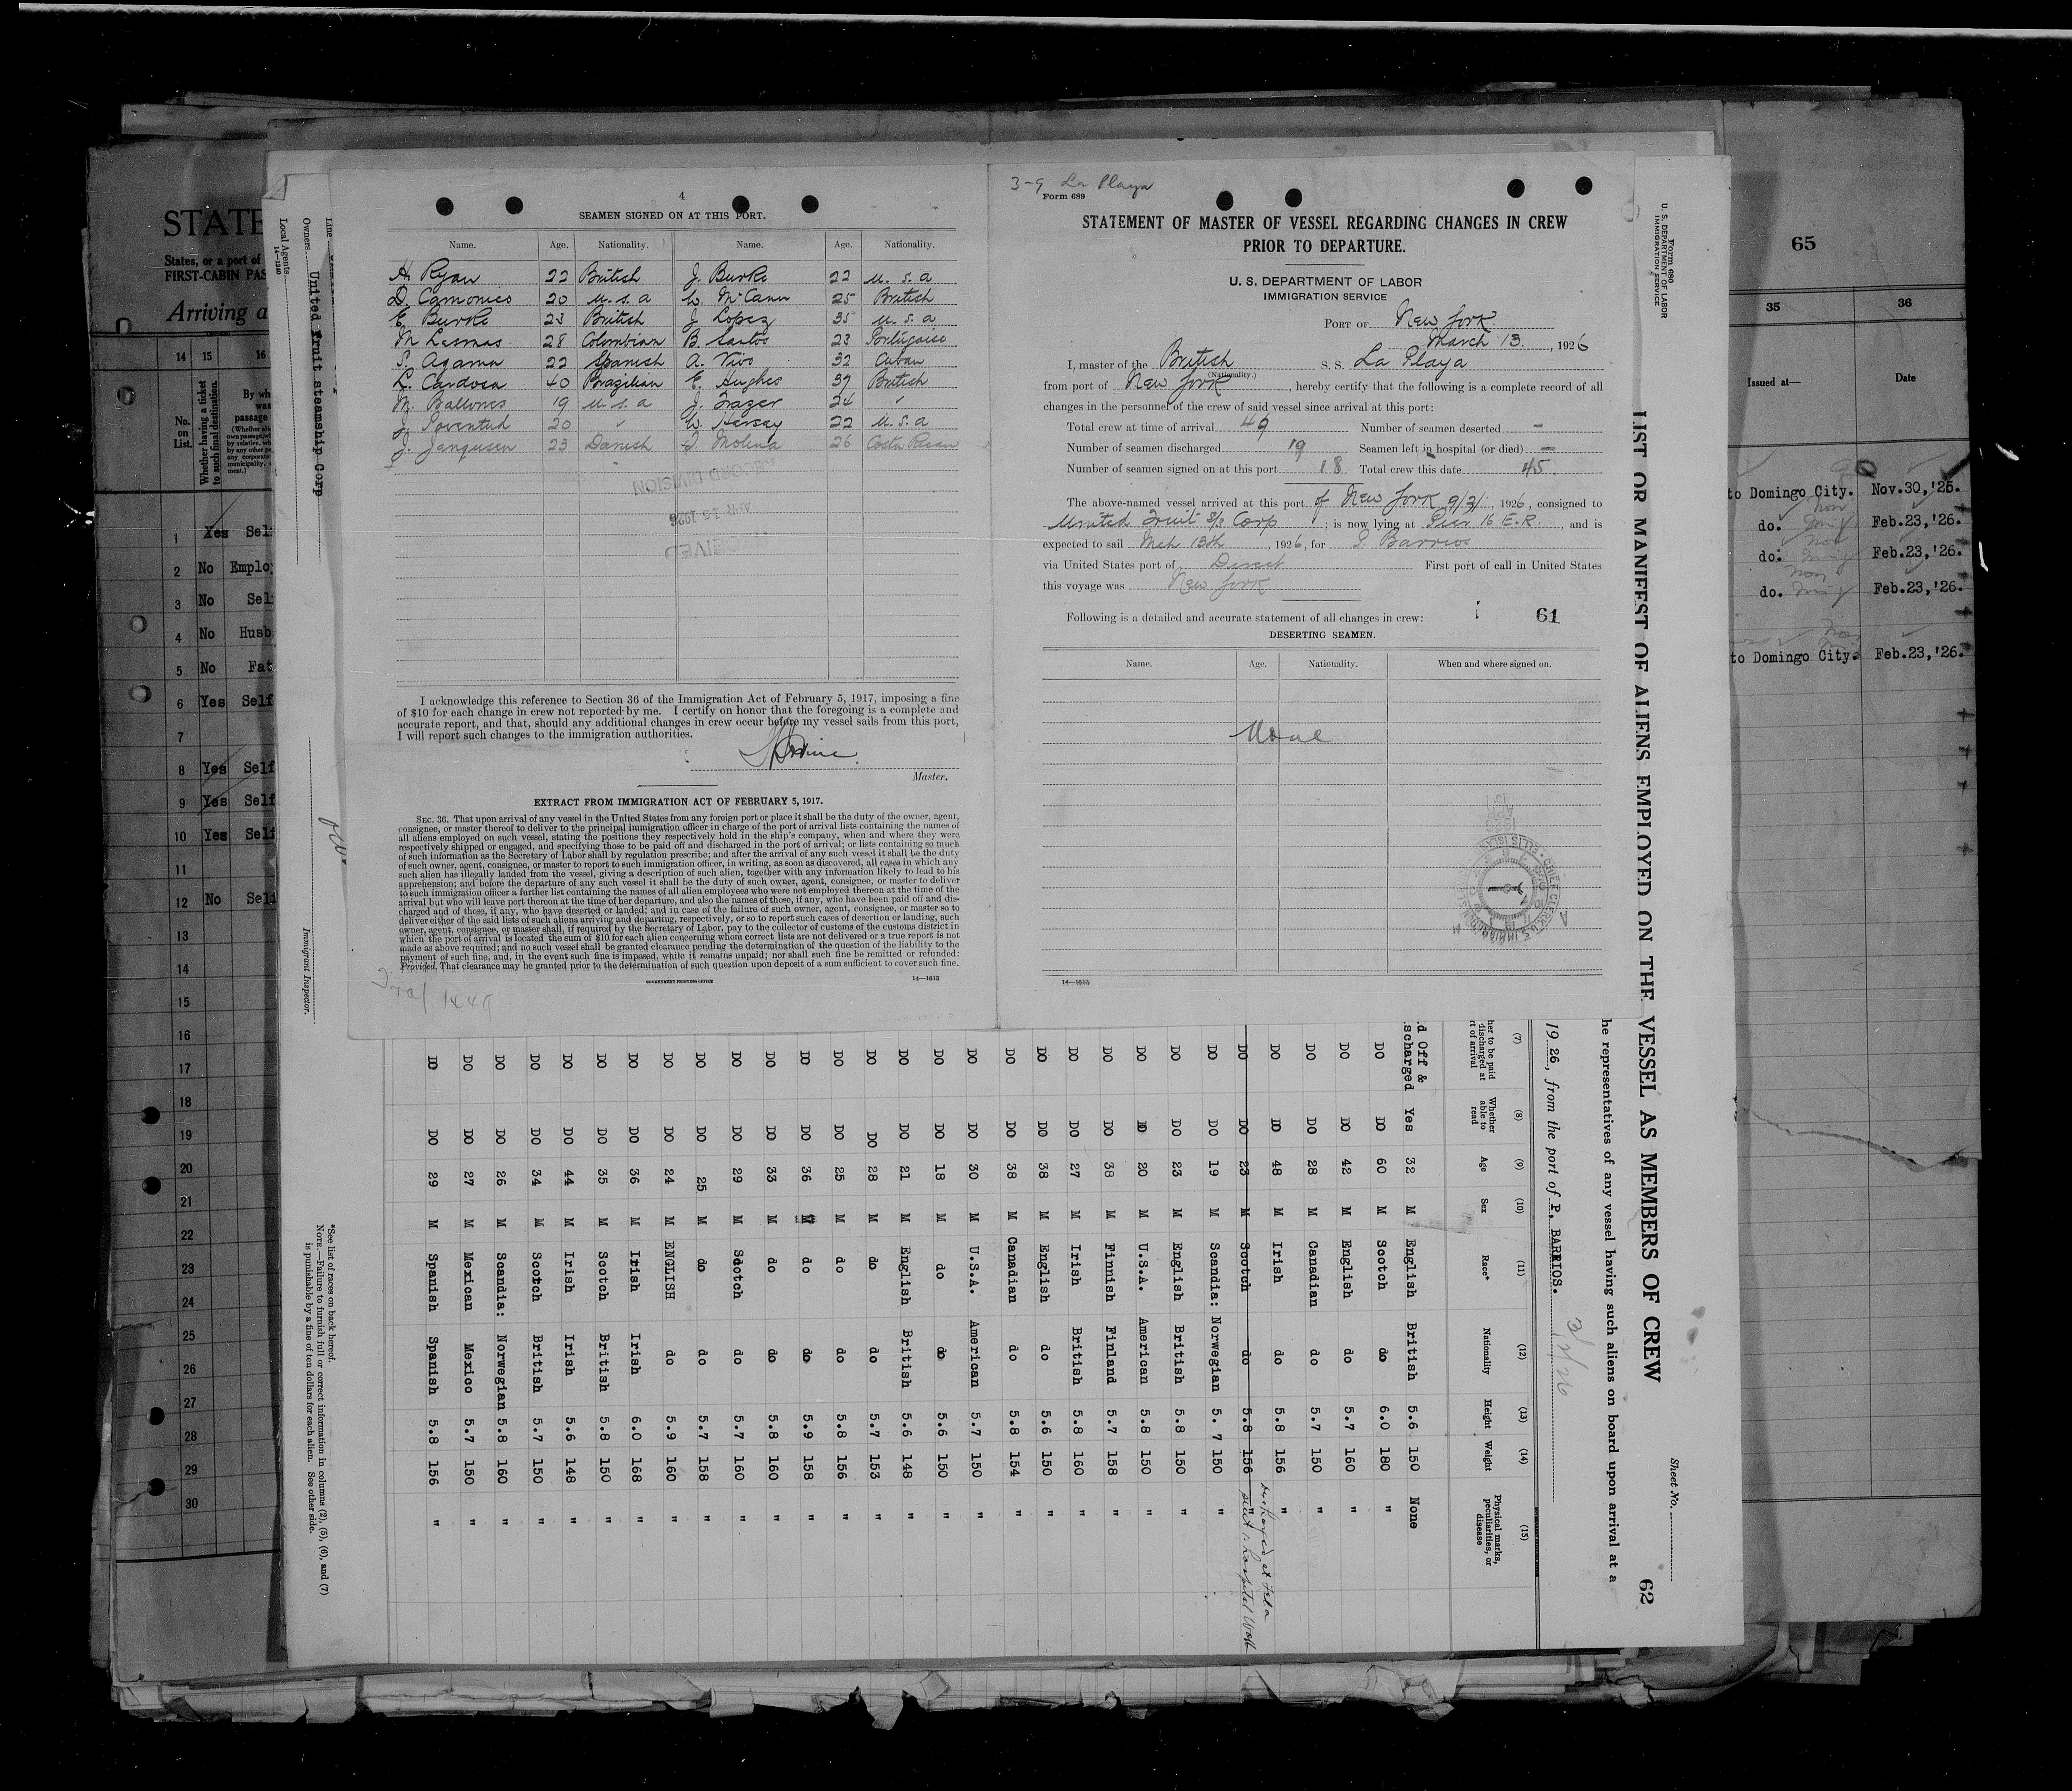 4
SEAMEN SIGNED ON AT THIS PORT.
Name. Age. Nationality. Name. Age. Nationality.
H. Ryan 22 British J. Burke 22 U.S.A
D. Camonies 20 U.S.A W. McCann 25 British
E. Burke 23 British J. Lopez 35 U.S.A
M Lesmas 28 Colombian B. Santos 23 Portugaise
S. Agama 22 Spanish A. Nivo 32 Cuban
L. Cardosa 40 Brazilian E. Hughes 39 British
M. Ballones 19 U.S.A J. Frazer 24 "
J. Joventud 20 " W. Hersey 22 U.S.A
J. Janqusen 23 Danish J. Molina 26 Costa Rican
RECORD DIVISION
APR 15 1926
RECEIVED
I acknowledge this reference to Section 36 of the Immigration Act of February 5, 1917, imposing a fine
of $10 for each change in crew not reported by me. I certify on honor that the foregoing is a complete and
accurate report, and that, should any additional changes in crew occur before my vessel sails from this port,
I will report such changes to the immigration authorities.
Master.
EXTRACT FROM IMMIGRATION ACT OF FEBRUARY 5, 1917.
SEC. 36. That upon arrival of any vessel in the United States from any foreign port or place it shall be the duty of the owner, agent,
consignee, or master thereof to deliver to the principal immigration officer in charge of the port of arrival lists containing the names of
all aliens employed on such vessel, stating the positions they respectively hold in the ship's company, when and where they were
respectively shipped or engaged, and specifying those to be paid off and discharged in the port of arrival; or lists containing so much
of such information as the Secretary of Labor shall by regulation prescribe; and after the arrival of any such vessel it shall be the duty
of such owner, agent, consignee, or master to report to such immigration officer, in writing, as soon as discovered, all cases in which any
such alien has illegally landed from the vessel, giving a description of such alien, together with any information likely to lead to his
apprehension; and before the departure of any such vessel it shall be the duty of such owner, agent, consignee, or master to deliver
to such immigration officer a further list containing the names of all alien employees who were not employed thereon at the time of the
arrival but who will leave port thereon at the time of her departure, and also the names of those, if any, who have been paid off and dis-
charged and of those, if any, who have deserted or landed; and in case of the failure of such owner, agent, consignee, or master so to
deliver either of the said lists of such aliens arriving and departing, respectively, or so to report such cases of desertion or landing, such
owner, agent, consignee, or master shall, if required by the Secretary of Labor, pay to the collector of customs of the customs district in
which the port of arrival is located the sum of $10 for each alien concerning whom correct lists are not delivered or a true report is not
made as above required; and no such vessel shall be granted clearance pending the determination of the question of the liability to the
payment of such fine, and, in the event such fine is imposed, while it remains unpaid; nor shall such fine be remitted or refunded:
Provided, That clearance may be granted prior to the determination of such question upon deposit of a sum sufficient to cover such fine.
GOVERNMENT PRINTING OFFICE 14—1613
3-9 La Playa
Form 689
STATEMENT OF MASTER OF VESSEL REGARDING CHANGES IN CREW
PRIOR TO DEPARTURE.
U. S. DEPARTMENT OF LABOR
IMMIGRATION SERVICE
PORT OF New York
March 13, 1926
I, master of the British S. S. La Playa
(Nationality.)
from port of New York, hereby certify that the following is a complete record of all
changes in the personnel of the crew of said vessel since arrival at this port:
Total crew at time of arrival 49 Number of seamen deserted -
Number of seamen discharged 19 Seamen left in hospital (or died) -
Number of seamen signed on at this port 18 Total crew this date 45
The above-named vessel arrived at this port of New York 9/3/, 1926, consigned to
United Fruit S/S Corp; is now lying at Pier 16 E.R., and is
expected to sail Mch 13th, 1926, for P. Barrios
via United States port of Direct First port of call in United States
this voyage was New York
Following is a detailed and accurate statement of all changes in crew: 61
DESERTING SEAMEN.
Name. Age. Nationality. When and where signed on.
None
14—1613
Form 680
U. S. DEPARTMENT OF LABOR
IMMIGRATION SERVICE
Sheet No. 62
LIST OR MANIFEST OF ALIENS EMPLOYED ON THE VESSEL AS MEMBERS OF CREW
he representatives of any vessel having such aliens on board upon arrival at a
19 26, from the port of P. BARRIOS.
(7) (8) (9) (10) (11) (12) (13) (14) (15)
her to be paid discharged at rt of arrival Whether able to read Age Sex Race* Nationality Height Weight Physical marks, peculiarities, or disease
d Off & scharged Yes 32 M English British 5.6 150 None
DO DO 60 M Scotch do 6.0 180 "
DO DO 42 M English do 5.7 160 "
DO DO 28 M Canadian do 5.7 150 "
DO DO 48 M Irish do 5.8 156 "
DO DO 23 M Scotch do 5.8 156 "
DO DO 19 M Scandia: Norwegian 5.7 150 "
DO DO 23 M English British 5.8 150 "
DO DO 20 M U.S.A. American 5.8 150 "
DO DO 38 M Finnish Finland 5.7 158 "
DO DO 27 M Irish British 5.8 160 "
DO DO 38 M English do 5.6 150 "
DO DO 38 M Canadian do 5.8 154 "
DO DO 30 M U.S.A. American 5.7 150 "
DO DO 18 M do do 5.6 150 "
DO DO 21 M English British 5.6 148 "
DO DO 28 M do do 5.7 153 "
DO DO 25 M do do 5.8 156 "
DO DO 36 M do do 5.9 158 "
DO DO 33 M do do 5.8 160 "
DO DO 29 M Scotch do 5.7 160 "
DO DO 25 M do do 5.7 158 "
DO DO 24 M ENGLISH do 5.9 160 "
DO DO 36 M Irish Irish 6.0 168 "
DO DO 35 M Scotch British 5.8 150 "
DO DO 44 M Irish Irish 5.6 148 "
DO DO 34 M Scotch British 5.7 150 "
DO DO 26 M Scandia: Norwegian 5.8 160 "
DO DO 27 M Mexican Mexico 5.7 150 "
DO DO 29 M Spanish Spanish 5.8 156 "
Line
Owners United Fruit steamship Corp
Local Agents
14—1240
Immigrant Inspector.
*See list of races on back hereof.
NOTE.—Failure to furnish full or correct information in columns (2), (5), (6), and (7)
is punishable by a fine of ten dollars for each alien. See other side.
STATE
States, or a port of
FIRST-CABIN PAS
Arriving a
14 15 16
No. on List.
Whether having a ticket to such final destination.
By wh
was
passage
1 Yes Sel
2 No Emplo
3 No Sel
4 No Husb
5 No Fat
6 Yes Self
7
8 Yes Self
9 Yes Self
10 Yes Self
11
12 No Sel
13
14
15
16
17
18
19
20
21
22
23
24
25
26
27
28
29
30
65
35 36
Issued at— Date
to Domingo City. Nov.30,'25.
do. Feb.23,'26.
do. Feb.23,'26.
do. Feb.23,'26.
to Domingo City. Feb.23,'26.